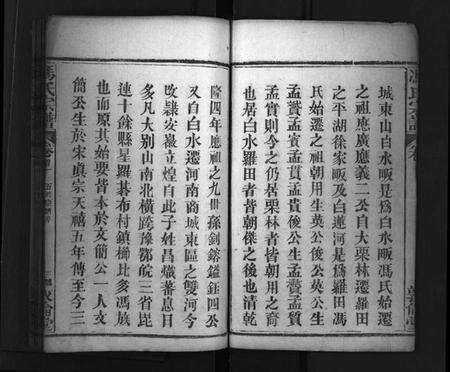 城東山白水畈是爲白水畈馮氏始遷
之祖應廣應義二公自大栗林遷羅田
之平湖徐家畈及白蓮河是爲羅田馮
氏始遷之祖朝用生英公後公英公生
孟贇孟贇孟貴後公生孟贇孟質
孟實則今之仍居栗林者皆朝用之裔
也居白水羅田者皆朝傑之後也清乾
隆四年應祖之九世孫釗鎔鎰鈺四公
又自白水遷河南商城東區之雙河今
改隸安徽立煌自此子姓昌熾蕃息目
多凡大別山南北橫跨豫鄂皖三省毘
連十餘縣星羅棋布村鎮櫛比多馮族
也而原其始要皆本於文簡公一人文
簡公生於宋真宗天禧五年傳至今三
馮氏宗譜